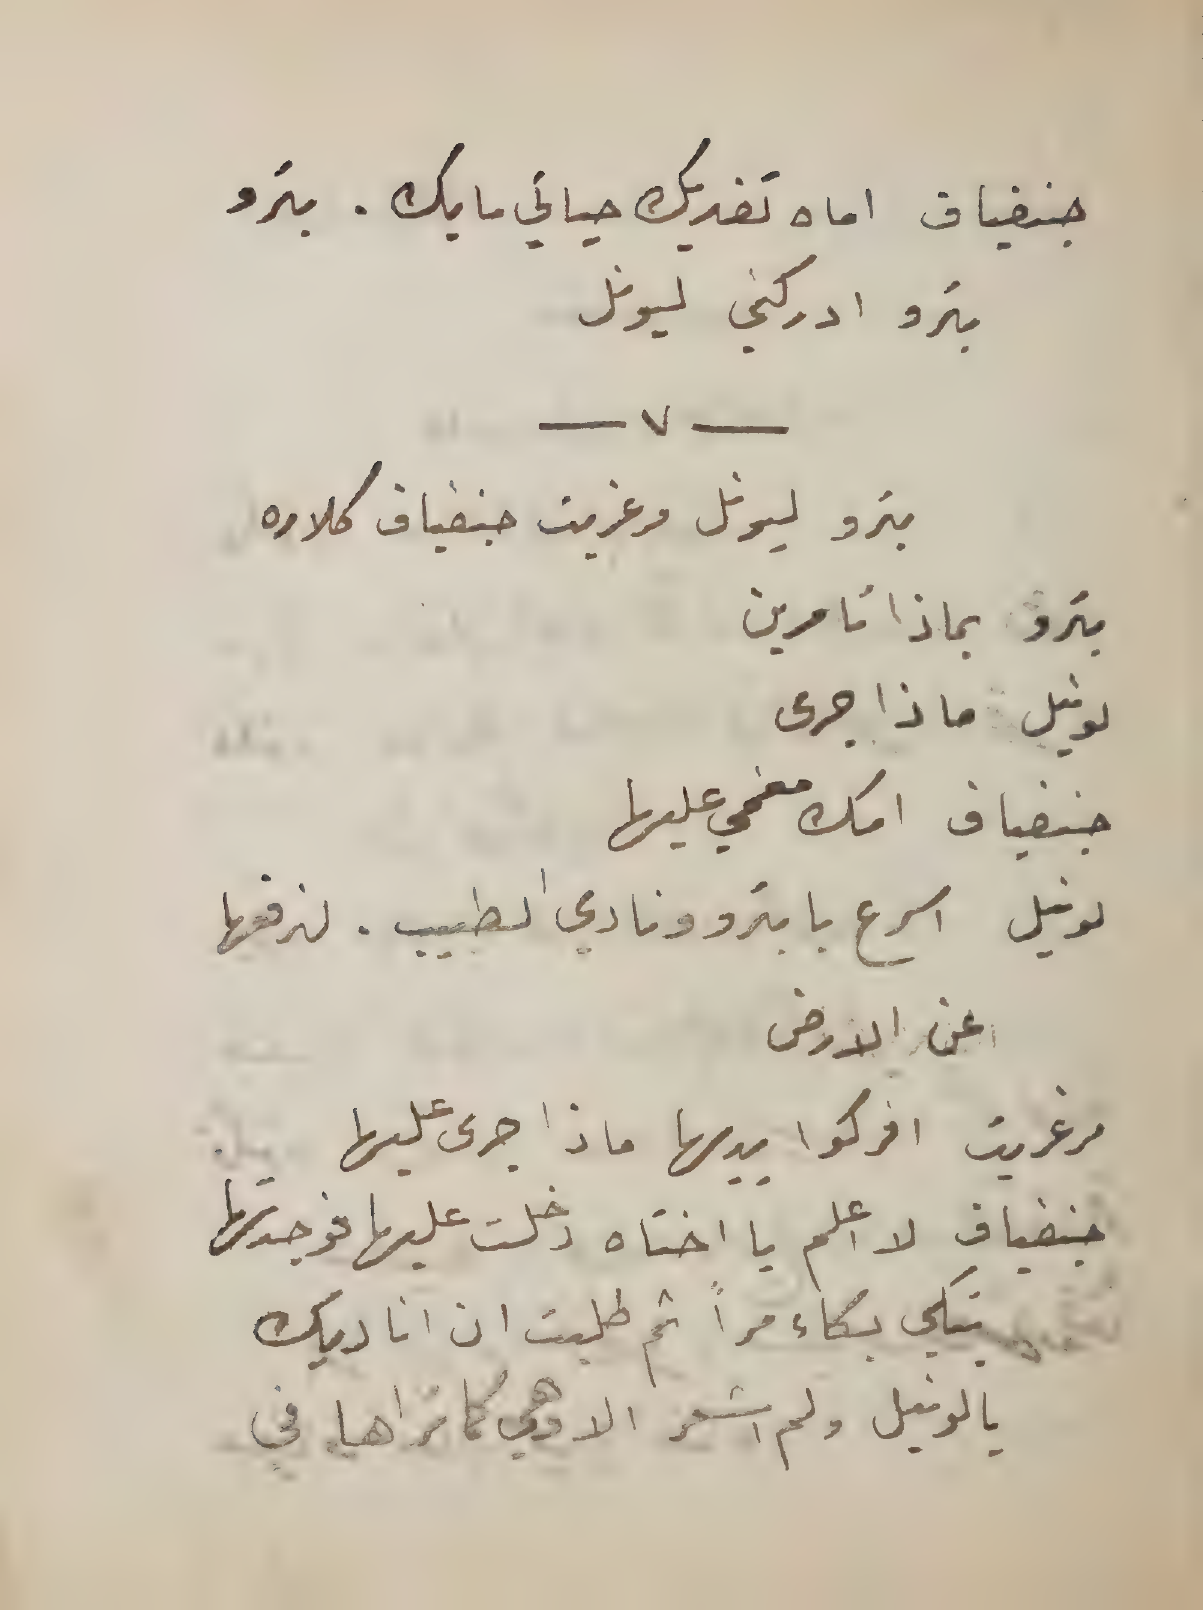 جنفياف اماه تفديك حياتي ما بك . بترو
بترو ادركني ليونل
— ٧ —
بترو ليونل مرغريت جنفياف كلاره
بترو بماذا تامرين
لونيل ماذا جرى
جنفياف امك مغمي عليها
لونيل اسرع يا بترو ونادي الطبيب . لنرفعها
عن الارض
مرغريت افركوا يديها ماذا جرى عليها
جنفياف لا اعلم يا اختاه دخلت عليها فوجدتها
تبكي بكاء مراً ثم طلبت ان اناديك
يا لونيل ولم اشعر الا وهي كما تراها في